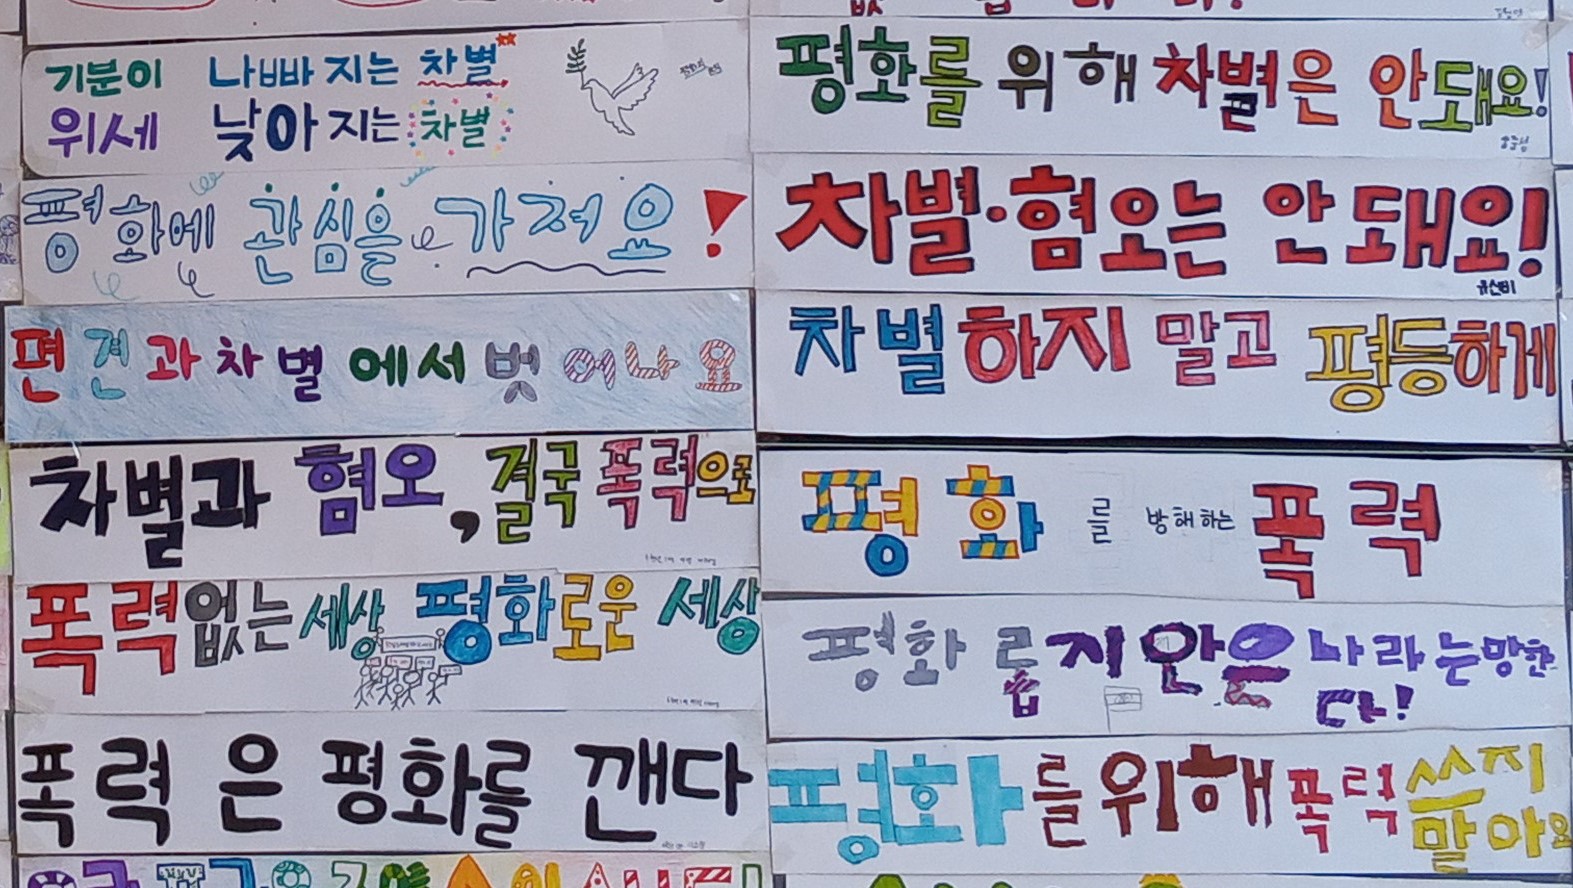 기분이 나빠지는 차별
위세 낮아지는 차별
평화에 관심을 가져요!
편견과 차별에서 벗어나요
차별과 혐오, 결국 폭력으로
폭력없는 세상 평화로운 세상
폭력은 평화를 깬다
평화를 위해 차별은 안돼요!
차별·혐오는 안돼요!
유선비
차별하지 말고 평등하게
평화를 방해하는 폭력
평화롭지 안은 나라는 망한
다!
평화를 위해 폭력 쓰지
말아요